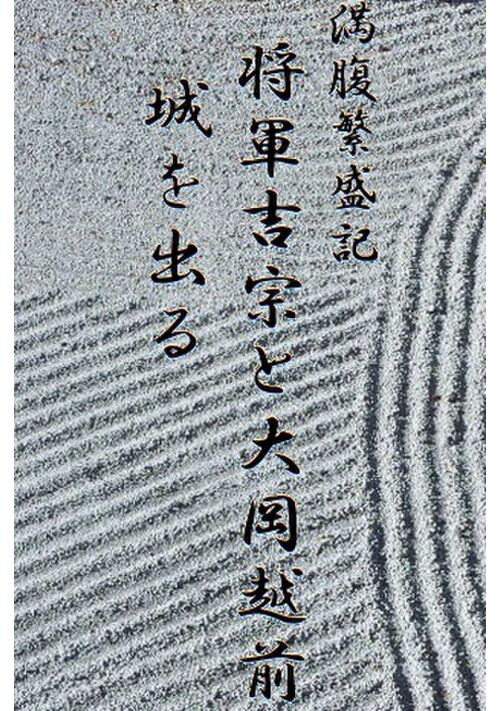 満腹繁盛記
将軍吉宗と大岡越前
城を出る